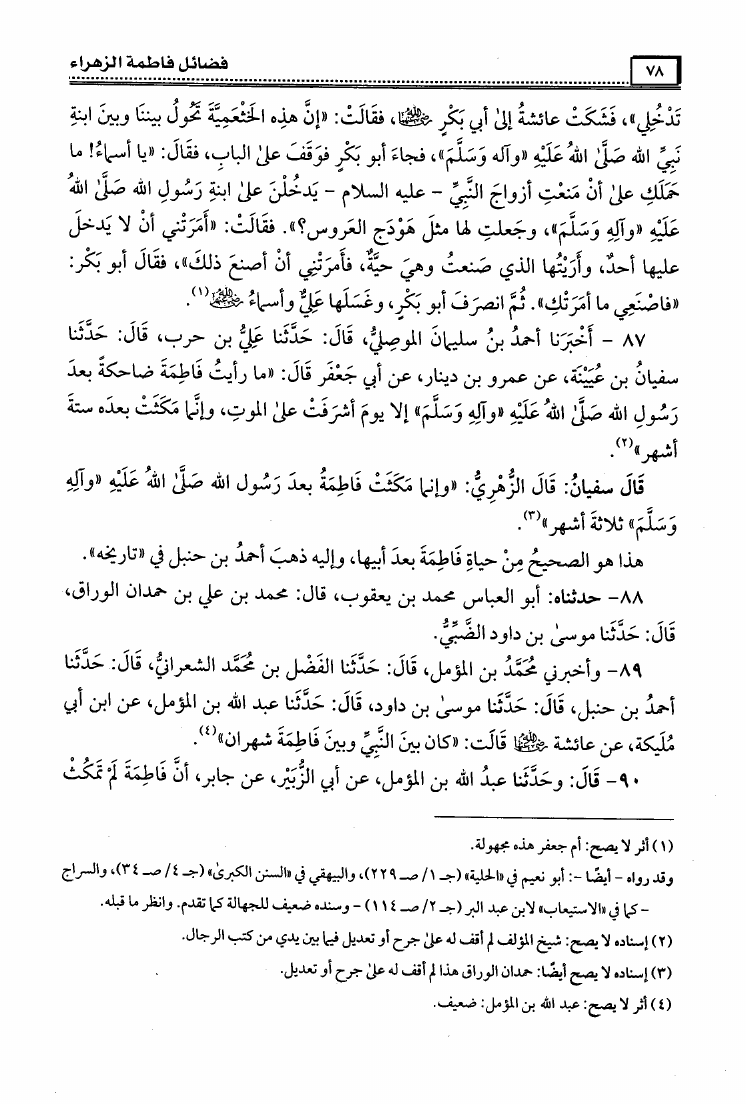 ٧٨
فضائل فاطمة الزهراء
تَدْخُلِي»، فَشَكَتْ عائشةُ إلىٰ أبي بَكْرٍ ﵁، فقالَتْ: «إنَّ هذِه الخَثْعَمِيَّةَ تَحُولُ بيننَا وبينَ ابنةِ
نَبِيِّ الله صَلَّىٰ اللهُ عَلَيْهِ «وآله وَسَلَّمَ»، فجاءَ أبو بَكْرٍ فوَقَفَ علىٰ البابِ، فقَالَ: «يا أسماءُ! ما
حَمَلَكِ علىٰ أنْ مَنعْتِ أزواجَ النَّبِيِّ - عليه السلام - يَدخُلْنَ علىٰ ابنةِ رَسُولِ الله صَلَّىٰ اللهُ
عَلَيْهِ «وآلِهِ وَسَلَّمَ»، وجَعلتِ لها مثلَ هَوْدَجِ العَروسِ؟». فقَالَتْ: «أمَرَتْني أنْ لا يَدخلَ
عليها أحدٌ، وأَرَيْتُها الذي صَنعتُ وهيَ حيَّةٌ، فأمَرَتْنِي أنْ أصنعَ ذلكَ»، فقالَ أبو بَكْرٍ:
«فاصْنَعِي ما أمَرَتْكِ». ثُمَّ انصرَفَ أبو بَكْرٍ، وغَسَلَها عَلِيٌّ وأسماءُ ﵄(١).
٨٧ - أَخْبَرَنا أحمدُ بنُ سليمانَ الموصليُّ، قَالَ: حَدَّثنا عَلِيُّ بن حرب، قَالَ: حَدَّثنا
سفيانُ بن عُيَيْنَة، عن عمرو بن دينار، عن أبي جَعْفَر قَالَ: «ما رأيتُ فَاطِمَةَ ضاحكةً بعدَ
رَسُولِ الله صَلَّىٰ اللهُ عَلَيْهِ «وآلِهِ وَسَلَّمَ» إلا يومَ أشرفَتْ علىٰ الموتِ، وإنَّما مَكَثَتْ بعدَه ستةَ
أشهر»(٢).
قَالَ سفيانُ: قَالَ الزُّهْرِيُّ: «وإنما مَكَثَت فَاطِمَةُ بعدَ رَسُول الله صَلَّىٰ اللهُ عَلَيْهِ «وآلِهِ
وَسَلَّمَ» ثلاثةَ أشهر»(٣).
هذا هو الصحيحُ مِنْ حياةِ فَاطِمَةَ بعدَ أبيها، وإليه ذهبَ أحمدُ بن حنبل في «تاريخه».
٨٨- حدثناه: أبو العباس محمد بن يعقوب، قال: محمد بن علي بن حمدان الوراق،
قَالَ: حَدَّثنا موسىٰ بن داود الضَّبِّيُّ.
٨٩- وأخبرني مُحَمَّدُ بن المؤمل، قَالَ: حَدَّثنا الفَضْل بن مُحَمَّد الشعرانيُّ، قَالَ: حَدَّثنا
أحمدُ بن حنبل، قَالَ: حَدَّثنا موسىٰ بن داود، قَالَ: حَدَّثنا عبد الله بن المؤمل، عن ابن أبي
مُليكة، عن عائشة ﵂ قَالَت: «كان بينَ النَّبِيِّ وبينَ فَاطِمَةَ شهران»(٤).
٩٠- قَالَ: وحَدَّثنا عبدُ الله بن المؤمل، عن أبي الزُّبَيْر، عن جابر، أنَّ فَاطِمَةَ لَمْ تمكثْ
(١) أثر لا يصح: أم جعفر هذه مجهولة.
وقد رواه - أيضًا -: أبو نعيم في «الحلية» (جـ ١/ صـ ٢٢٩)، والبيهقي في «السنن الكبرىٰ» (جـ ٤/ صـ ٣٤)، والسراج
- كما في «الاستيعاب» لابن عبد البر (جـ ٢/ صـ ١١٤) - وسنده ضعيف للجهالة كما تقدم. وانظر ما قبله.
(٢) إسناده لا يصح: شيخ المؤلف لم أقف له علىٰ جرح أو تعديل فيما بين يدي من كتب الرجال.
(٣) إسناده لا يصح أيضًا: حمدان الوراق هذا لم أقف له علىٰ جرح أو تعديل.
(٤) أثر لا يصح: عبد الله بن المؤمل: ضعيف.